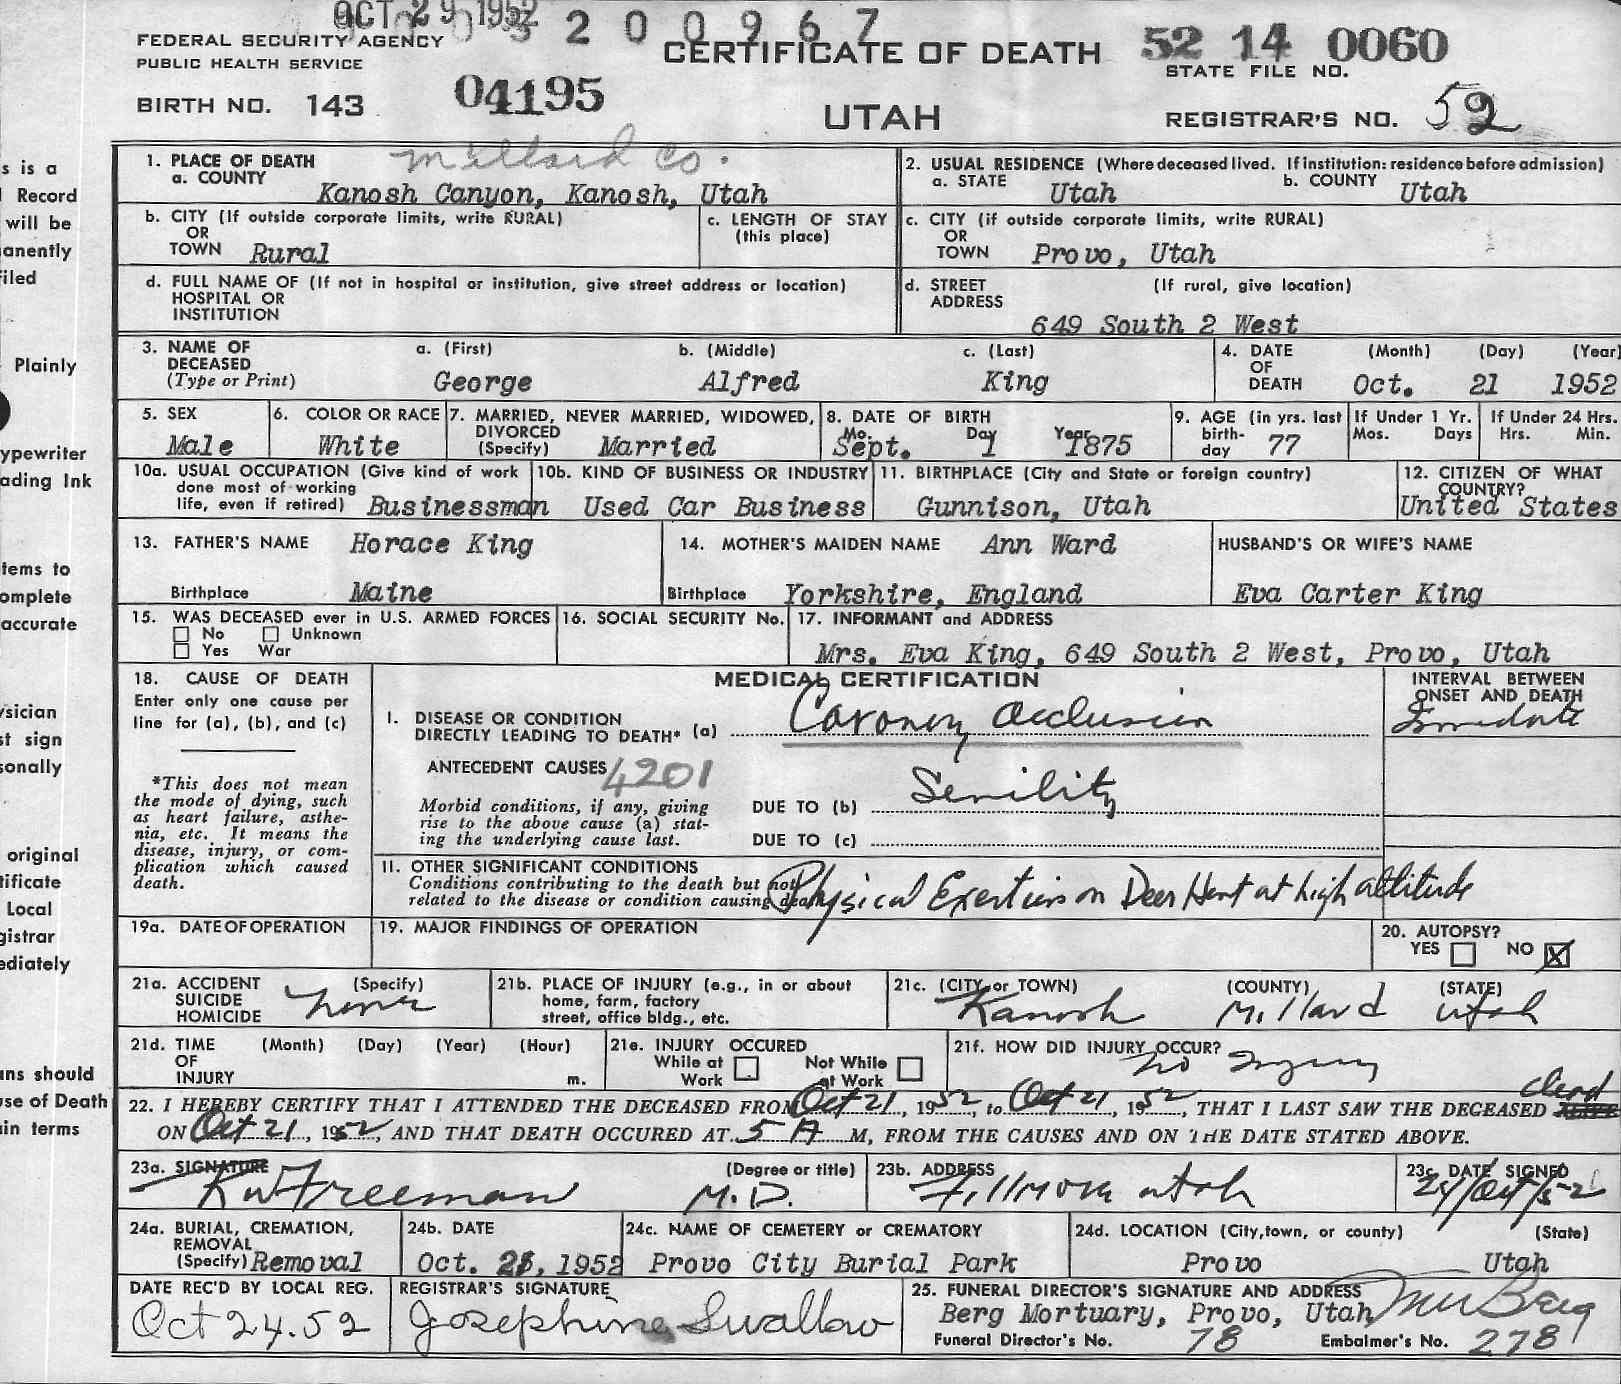 OCT 29 1952
2 0 0 9 6 7
FEDERAL SECURITY AGENCY
PUBLIC HEALTH SERVICE
CERTIFICATE OF DEATH
52 14 0060
STATE FILE NO.
BIRTH NO. 143
04195
UTAH
REGISTRAR'S NO. 52
1. PLACE OF DEATH
Millard Co.
a. COUNTY
Kanosh Canyon, Kanosh, Utah
2. USUAL RESIDENCE (Where deceased lived. If institution: residence before admission)
a. STATE Utah b. COUNTY Utah
b. CITY (If outside corporate limits, write RURAL)
OR
TOWN Rural
c. LENGTH OF STAY
(this place)
c. CITY (if outside corporate limits, write RURAL)
OR
TOWN Provo, Utah
d. FULL NAME OF (If not in hospital or institution, give street address or location)
HOSPITAL OR
INSTITUTION
d. STREET (If rural, give location)
ADDRESS
649 South 2 West
3. NAME OF
DECEASED
(Type or Print)
a. (First) b. (Middle) c. (Last)
George Alfred King
4. DATE
OF
DEATH
(Month) (Day) (Year)
Oct. 21 1952
5. SEX
Male
6. COLOR OR RACE
White
7. MARRIED, NEVER MARRIED, WIDOWED,
DIVORCED
(Specify) Married
8. DATE OF BIRTH
Mo. Day Year
Sept. 1 1875
9. AGE (in yrs. last
birth-
day 77
If Under 1 Yr.
Mos. Days
If Under 24 Hrs.
Hrs. Min.
10a. USUAL OCCUPATION (Give kind of work
done most of working
life, even if retired) Businessman
10b. KIND OF BUSINESS OR INDUSTRY
Used Car Business
11. BIRTHPLACE (City and State or foreign country)
Gunnison, Utah
12. CITIZEN OF WHAT
COUNTRY?
United States
13. FATHER'S NAME Horace King
Birthplace Maine
14. MOTHER'S MAIDEN NAME Ann Ward
Birthplace Yorkshire, England
HUSBAND'S OR WIFE'S NAME
Eva Carter King
15. WAS DECEASED ever in U.S. ARMED FORCES
No Unknown
Yes War
16. SOCIAL SECURITY No.
17. INFORMANT and ADDRESS
Mrs. Eva King, 649 South 2 West, Provo, Utah
18. CAUSE OF DEATH
Enter only one cause per
line for (a), (b), and (c)
*This does not mean
the mode of dying, such
as heart failure, asthe-
nia, etc. It means the
disease, injury, or com-
plication which caused
death.
MEDICAL CERTIFICATION
I. DISEASE OR CONDITION
DIRECTLY LEADING TO DEATH* (a) Coronary Occlusion
ANTECEDENT CAUSES 4201
Morbid conditions, if any, giving
rise to the above cause (a) stat-
ing the underlying cause last.
DUE TO (b) Senility
DUE TO (c)
INTERVAL BETWEEN
ONSET AND DEATH
II. OTHER SIGNIFICANT CONDITIONS
Conditions contributing to the death but not
related to the disease or condition causing death.
Physical Exertion on Deer Hunt at high altitude
19a. DATE OF OPERATION
19. MAJOR FINDINGS OF OPERATION
20. AUTOPSY?
YES NO X
21a. ACCIDENT (Specify)
SUICIDE
HOMICIDE none
21b. PLACE OF INJURY (e.g., in or about
home, farm, factory
street, office bldg., etc.
21c. (CITY or TOWN) (COUNTY) (STATE)
Kanosh Millard Utah
21d. TIME (Month) (Day) (Year) (Hour)
OF
INJURY m.
21e. INJURY OCCURED
While at Not While
Work at Work
21f. HOW DID INJURY OCCUR?
no injury
22. I HEREBY CERTIFY THAT I ATTENDED THE DECEASED FROM Oct 21, 1952, to Oct 21, 1952, THAT I LAST SAW THE DECEASED dead
ON Oct 21, 1952, AND THAT DEATH OCCURED AT 5 A M, FROM THE CAUSES AND ON THE DATE STATED ABOVE.
23a. SIGNATURE (Degree or title)
KW Freeman M.D.
23b. ADDRESS
Fillmore Utah
23c. DATE SIGNED
24a. BURIAL, CREMATION,
REMOVAL
(Specify) Removal
24b. DATE
Oct. 1952
24c. NAME OF CEMETERY or CREMATORY
Provo City Burial Park
24d. LOCATION (City, town, or county) (State)
Provo Utah
DATE REC'D BY LOCAL REG.
Oct 24.52
REGISTRAR'S SIGNATURE
Josephine Swallow
25. FUNERAL DIRECTOR'S SIGNATURE AND ADDRESS
Berg Mortuary, Provo, Utah
Funeral Director's No. 78 Embalmer's No. 278
s is a
Record
will be
anently
iled
Plainly
ypewriter
ading Ink
tems to
omplete
accurate
ysician
st sign
sonally
original
tificate
Local
gistrar
ediately
ans should
use of Death
in terms